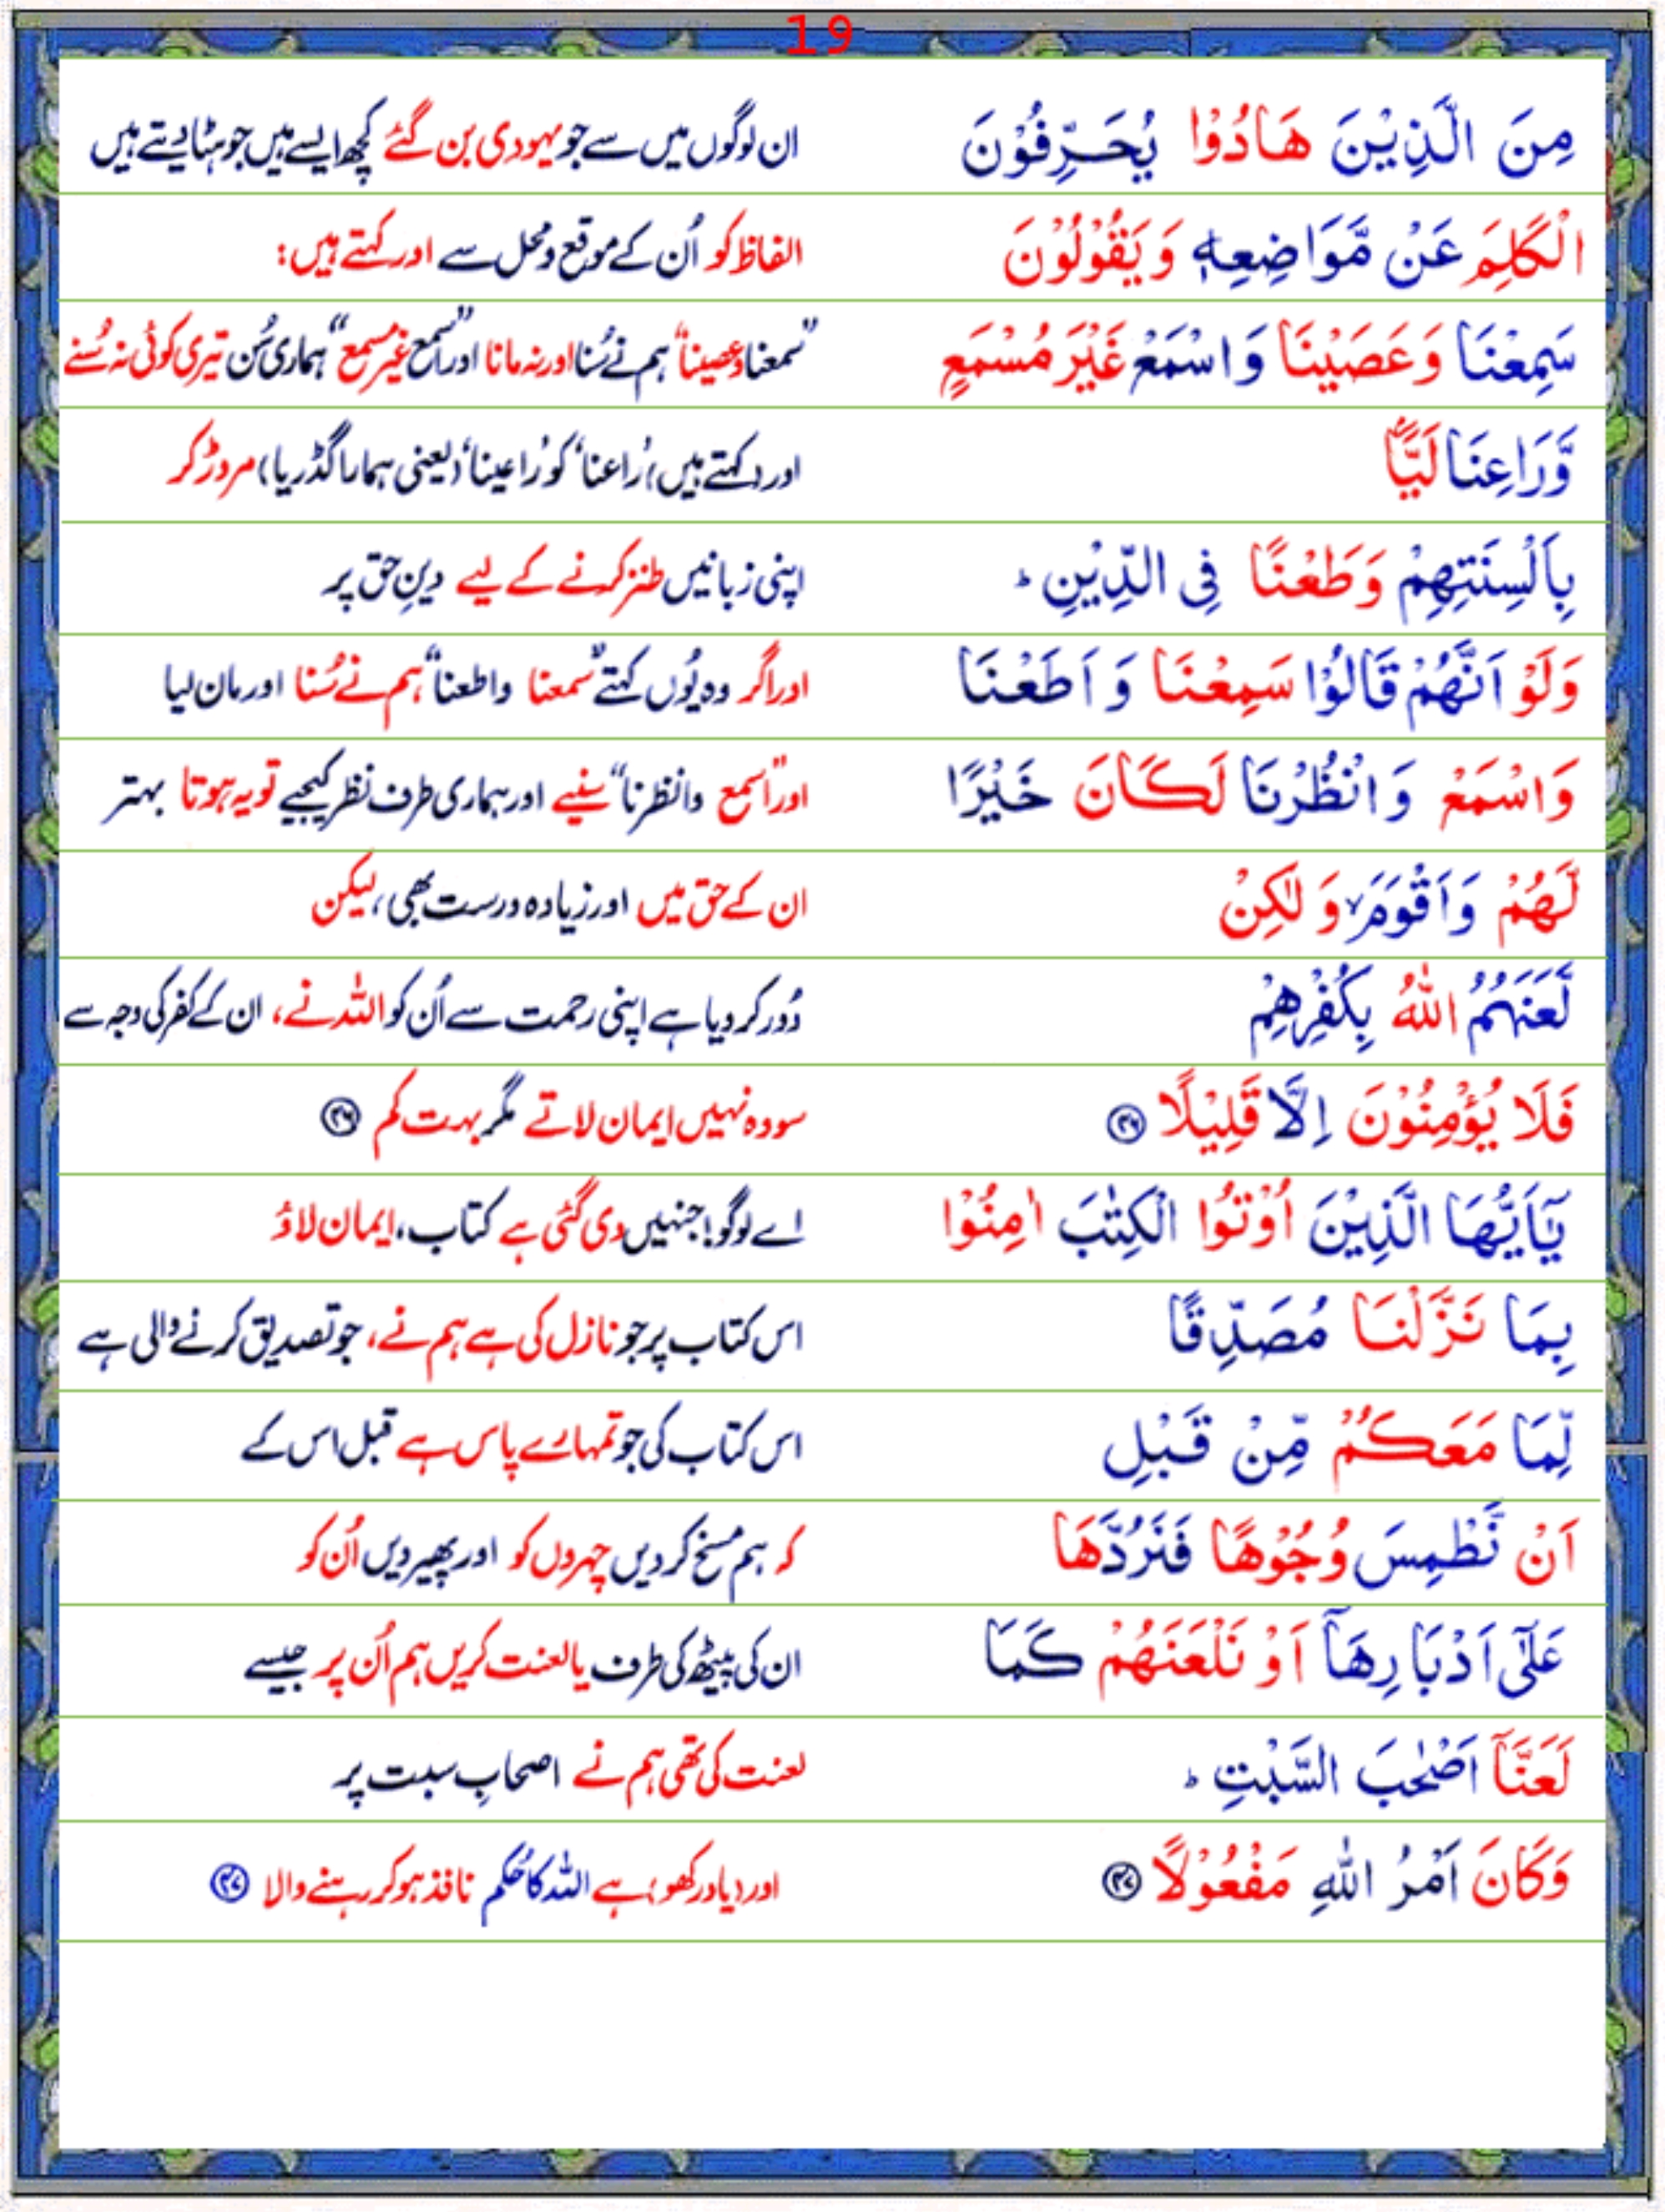 19
مِنَ الَّذِيْنَ هَادُوْا يُحَرِّفُوْنَ ان لوگوں میں سے جو یہودی بن گئے کچھ ایسے ہیں جو ہٹا دیتے ہیں
الْكَلِمَ عَنْ مَّوَاضِعِهٖ وَيَقُوْلُوْنَ الفاظ کو اُن کے موقع و محل سے اور کہتے ہیں:
سَمِعْنَا وَعَصَيْنَا وَاسْمَعْ غَيْرَ مُسْمَعٍ "سمعنا وعصینا" ہم نے سُنا اور نہ مانا اور "اسمع غیر مسمع" ہماری سُن تیری کوئی نہ سُنے
وَّرَاعِنَا لَيًّۢا اور (کہتے ہیں) 'راعنا' کو 'راعینا' (یعنی ہمارا گڈریا) مروڑ کر
بِاَلْسِنَتِهِمْ وَطَعْنًا فِى الدِّيْنِ ؕ اپنی زبانیں طنز کرنے کے لیے دینِ حق پر
وَلَوْ اَنَّهُمْ قَالُوْا سَمِعْنَا وَاَطَعْنَا اور اگر وہ یُوں کہتے "سمعنا واطعنا" ہم نے سُنا اور مان لیا
وَاسْمَعْ وَانْظُرْنَا لَكَانَ خَيْرًا اور "اسمع وانظرنا" سنیے اور ہماری طرف نظر کیجیے تو یہ ہوتا بہتر
لَّهُمْ وَاَقْوَمَ ۙ وَلٰكِنْ ان کے حق میں اور زیادہ درست بھی، لیکن
لَّعَنَهُمُ اللّٰهُ بِكُفْرِهِمْ دُور کر دیا ہے اپنی رحمت سے اُن کو اللہ نے، ان کے کفر کی وجہ سے
فَلَا يُؤْمِنُوْنَ اِلَّا قَلِيْلًا ۴۶ سو وہ نہیں ایمان لاتے مگر بہت کم ۴۶
يٰۤاَيُّهَا الَّذِيْنَ اُوْتُوا الْكِتٰبَ اٰمِنُوْا اے لوگو! جنہیں دی گئی ہے کتاب، ایمان لاؤ
بِمَا نَزَّلْنَا مُصَدِّقًا اس کتاب پر جو نازل کی ہے ہم نے، جو تصدیق کرنے والی ہے
لِّمَا مَعَكُمْ مِّنْ قَبْلِ اس کتاب کی جو تمہارے پاس ہے قبل اس کے
اَنْ نَّطْمِسَ وُجُوْهًا فَنَرُدَّهَا کہ ہم مسخ کر دیں چہروں کو اور پھیر دیں اُن کو
عَلٰٓى اَدْبَارِهَاۤ اَوْ نَلْعَنَهُمْ كَمَا ان کی پیٹھ کی طرف یا لعنت کریں ہم اُن پر جیسے
لَعَنَّاۤ اَصْحٰبَ السَّبْتِ ؕ لعنت کی تھی ہم نے اصحابِ سبت پر
وَكَانَ اَمْرُ اللّٰهِ مَفْعُوْلًا ۴۷ اور (یاد رکھو) ہے اللہ کا حُکم نافذ ہو کر رہنے والا ۴۷